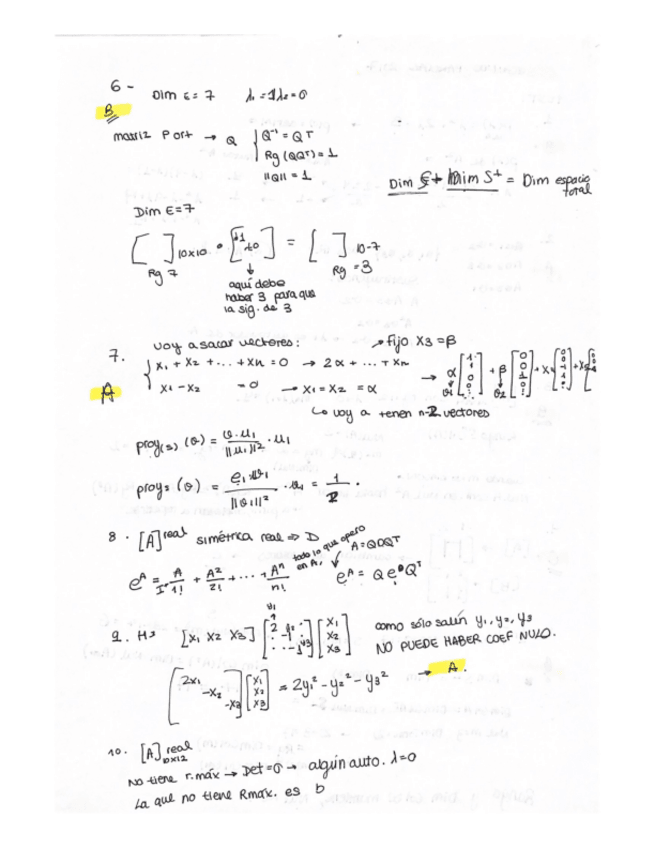 6 -
B
Dim E = 7 λ1 = 1 λ2 = 0
matriz P ort → Q { Q⁻¹ = QT
Rg (QQT) = 1
||Q|| = 1
Dim S + Dim S⊥ = Dim espacio total
Dim E = 7
[ ]10x10 • [ ] = [ ]10-7
Rg 7
Rg = 3
aquí debe
haber 3 para que
la sig. de 3
7.
A
voy a sacar vectores: → fijo X3 = β
X1 + X2 + ... + Xn = 0 → 2α + ... + Xn
X1 - X2 = 0 → X1 = X2 = α
↳ voy a tener n-2 vectores
proy(s) (v) = v·u1 / ||u1||² · u1
proys (v) = e1·v1 / ||v1||² · v1 = 1/2 ·
8. [A]real simétrica real => D
todo lo que opero en A,
A = QDQT
e^A = + A/1! + A²/2! + ... + Aⁿ/n! e^A = Q e^D Q^T
9. H3 [X1 X2 X3] [X1 X2 X3]
como sólo salen y1, y2, y3
NO PUEDE HABER COEF NULO.
→ A.
[2x1 -x2 -x3] [X1 X2 X3] = 2y1² - y2² - y3²
10. [A]real
No tiene r. máx → Det = 0 → algún auto. λ = 0
La que no tiene Rmáx. es b